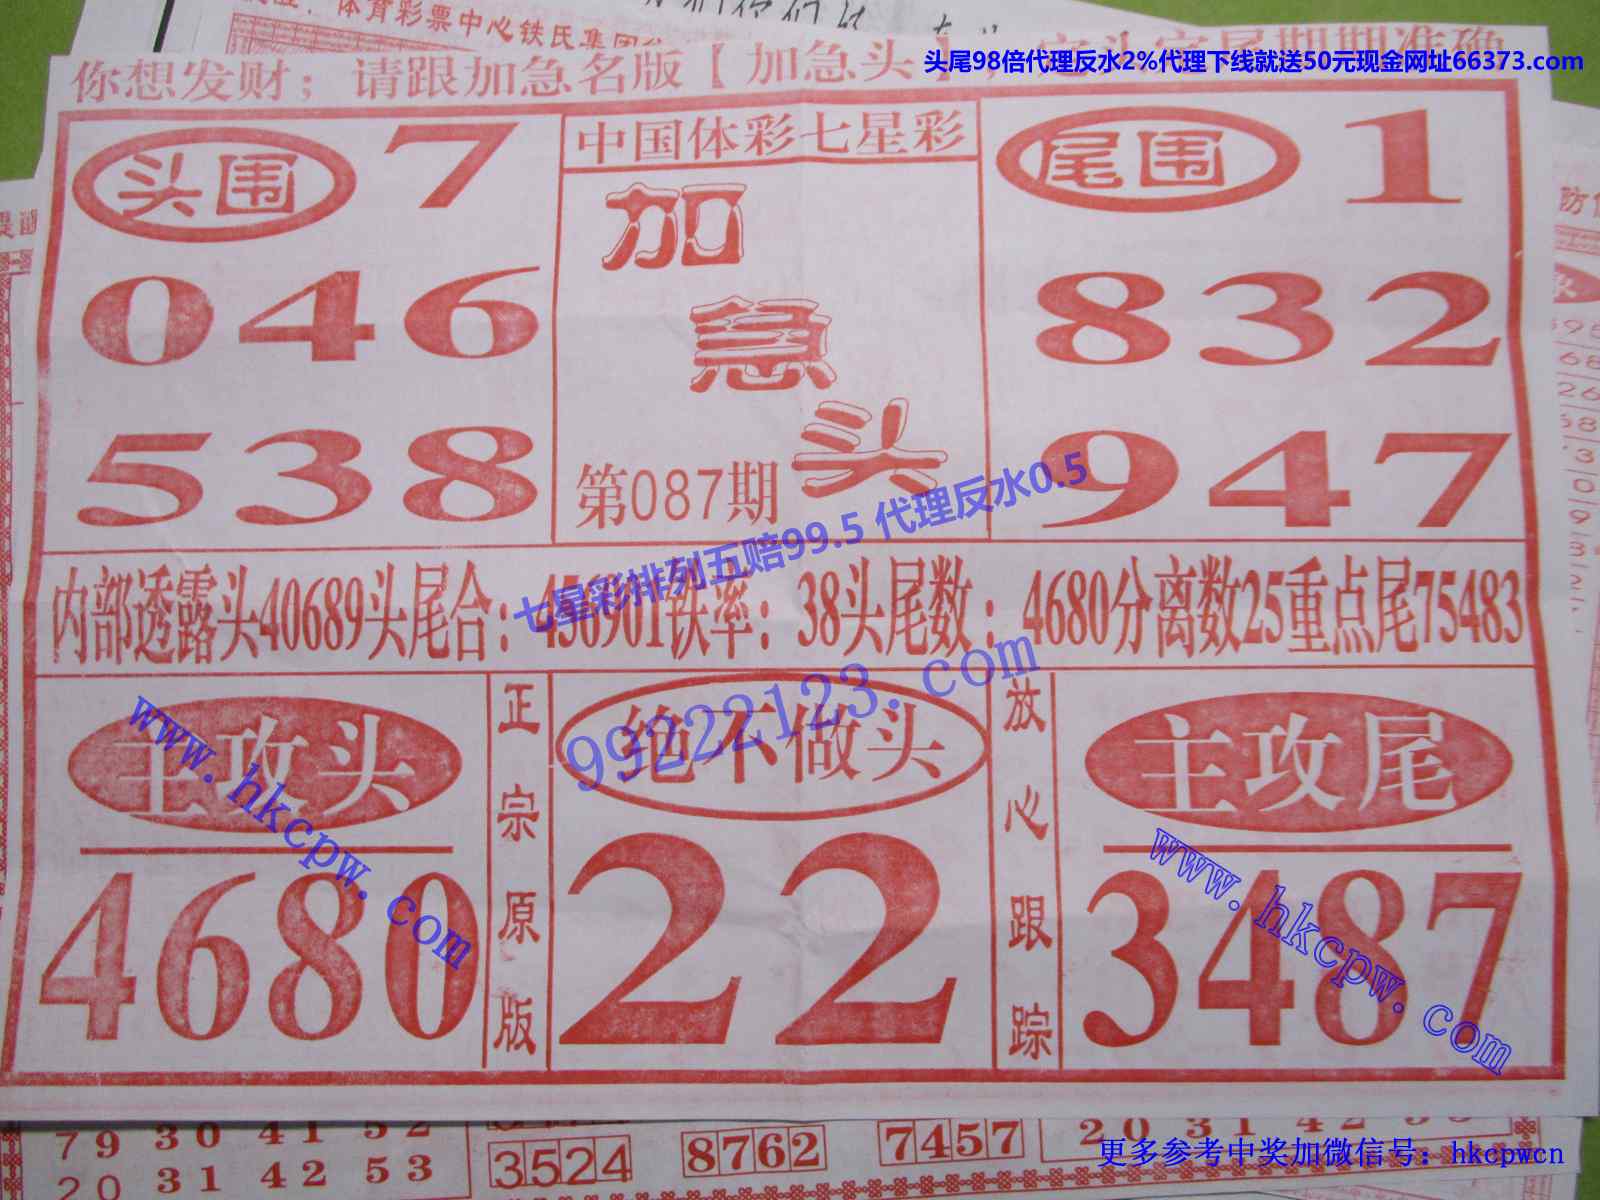 体育彩票中心铁氏集团
头尾98倍代理反水2%代理下线就送50元现金网址66373.com
你想发财；请跟加急名版【加急头】，定头定尾期期准确
头围 7
046
538
中国体彩七星彩
加
急
头
第087期
尾围 1
832
947
七星彩排列五赔99.5 代理反水0.5
内部透露头40689头尾合：456901铁率：38头尾数：4680分离数25重点尾75483
99222123.com
主攻头
4680
www.hkcpw.com
正宗原版
绝不做头
22
放心跟踪
主攻尾
3487
www.hkcpw.com
79 30 41 52
20 31 42 53
3524
8762
7457
20 31 42 53
更多参考中奖加微信号：hkcpwcn